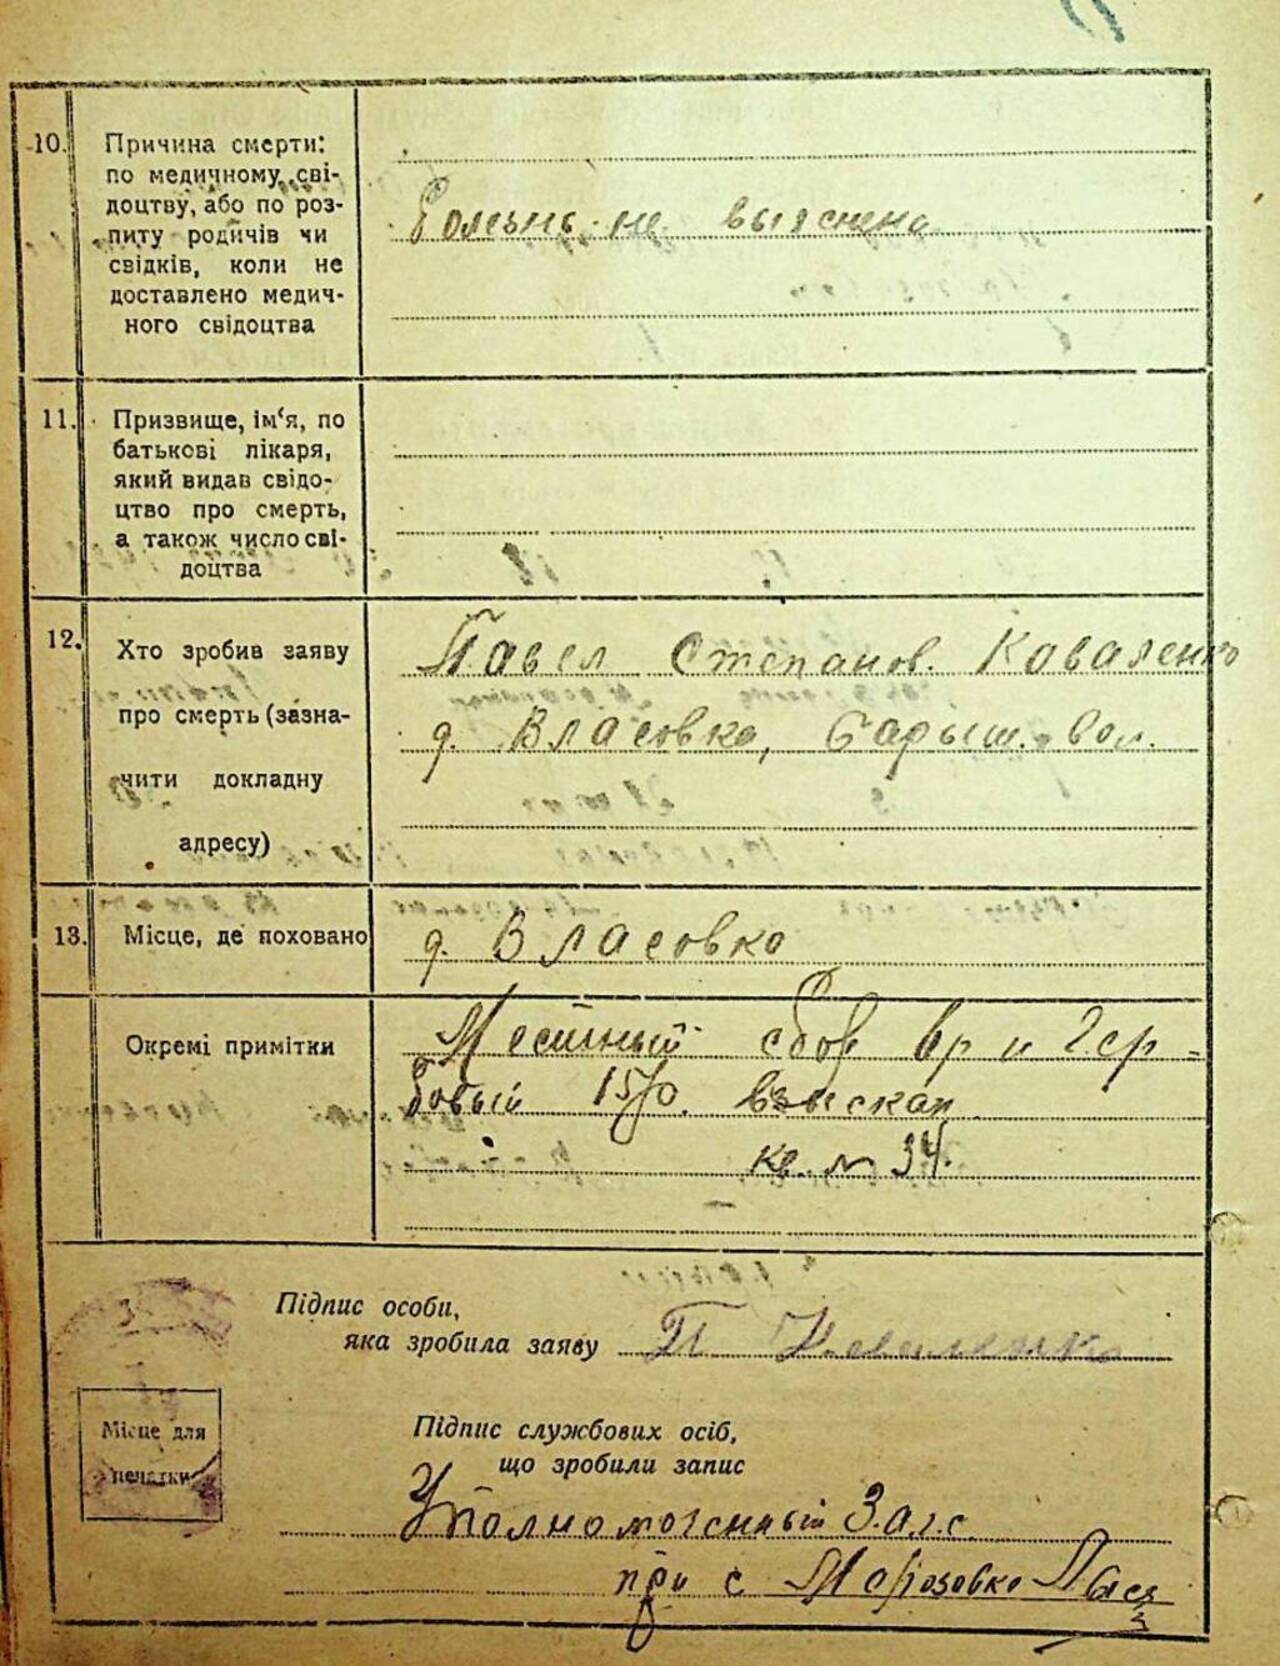 10. Причина смерти:
по медичному сві-
доцтву, або по роз-
питу родичів чи
свідків, коли не
доставлено медич-
ного свідоцтва
Болезнь не выяснена
11. Призвище, ім‘я, по
батькові лікаря,
який видав свідо-
цтво про смерть,
а також число сві-
доцтва
12. Хто зробив заяву
про смерть (зазна-
чити докладну
адресу)
Павел Степанов. Коваленко
д. Власовка, Барыш. вол.
13. Місце, де поховано
д. Власовка
Окремі примітки
Местный сбор и Гер-
бовый взыскан
кв. № 34.
Підпис особи,
яка зробила заяву П Коваленко
Місце для
печатки
Підпис службових осіб,
що зробили запис
Уполномоченный З.а.г.с.
при с Морозовке